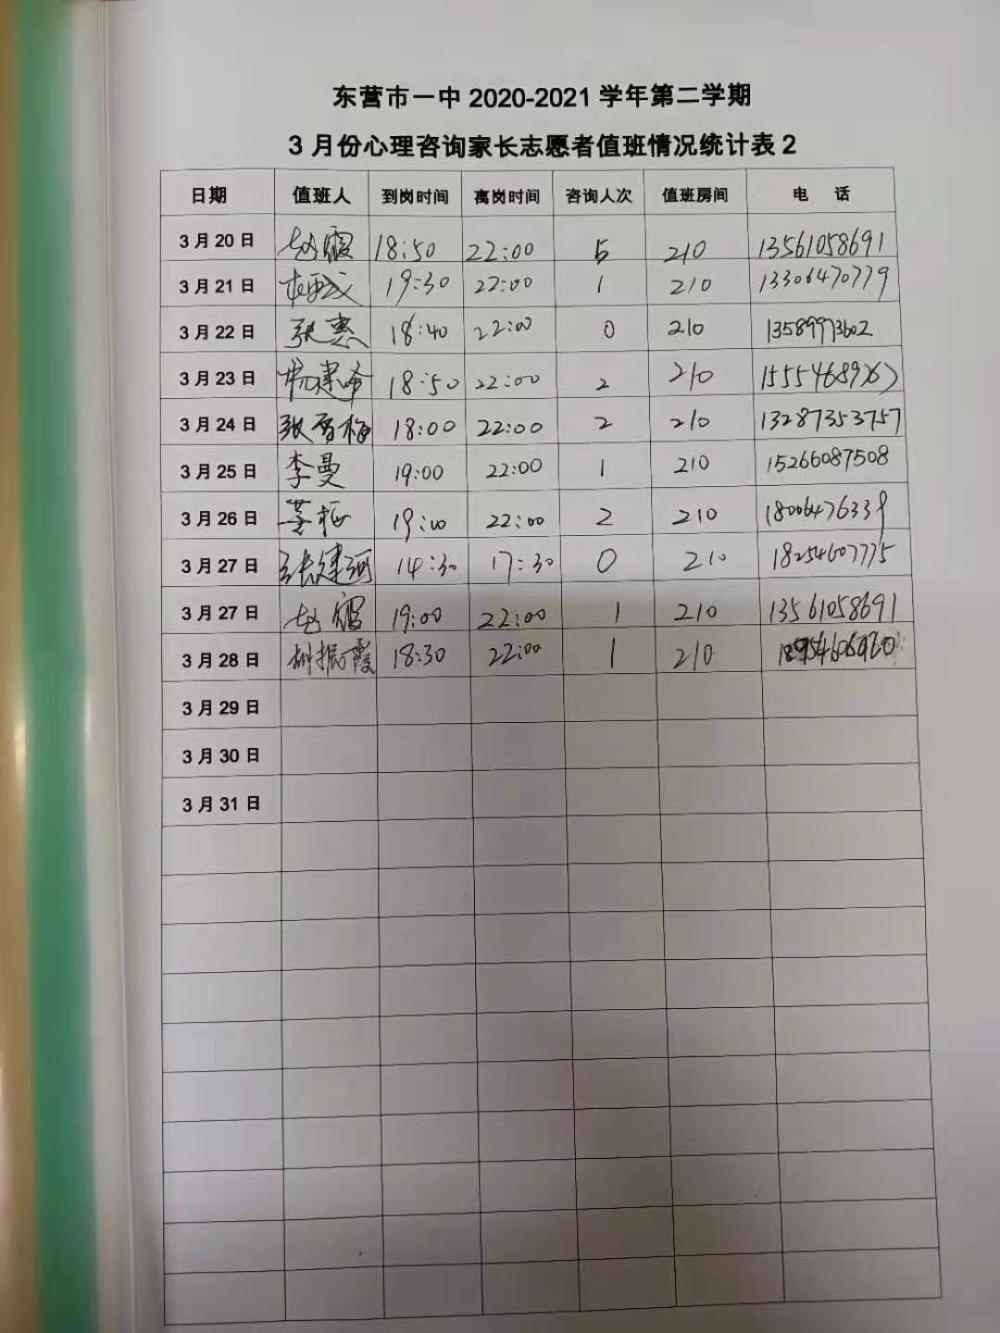 东营市一中 2020-2021 学年第二学期
3 月份心理咨询家长志愿者值班情况统计表 2
日期 值班人 到岗时间 离岗时间 咨询人次 值班房间 电 话
3 月 20 日 赵霞 18:50 22:00 5 210 13561058691
3 月 21 日 19:30 22:00 1 210 13306470779
3 月 22 日 张惠 18:40 22:00 0 210 13589973602
3 月 23 日 18:50 22:00 2 210
3 月 24 日 张雪梅 18:00 22:00 2 210 13287353757
3 月 25 日 李曼 19:00 22:00 1 210 15266087508
3 月 26 日 19:00 22:00 2 210 18006476339
3 月 27 日 张建河 14:30 17:30 0 210 18254607775
3 月 27 日 赵霞 19:00 22:00 1 210 13561058691
3 月 28 日 胡振霞 18:30 22:00 1 210
3 月 29 日
3 月 30 日
3 月 31 日